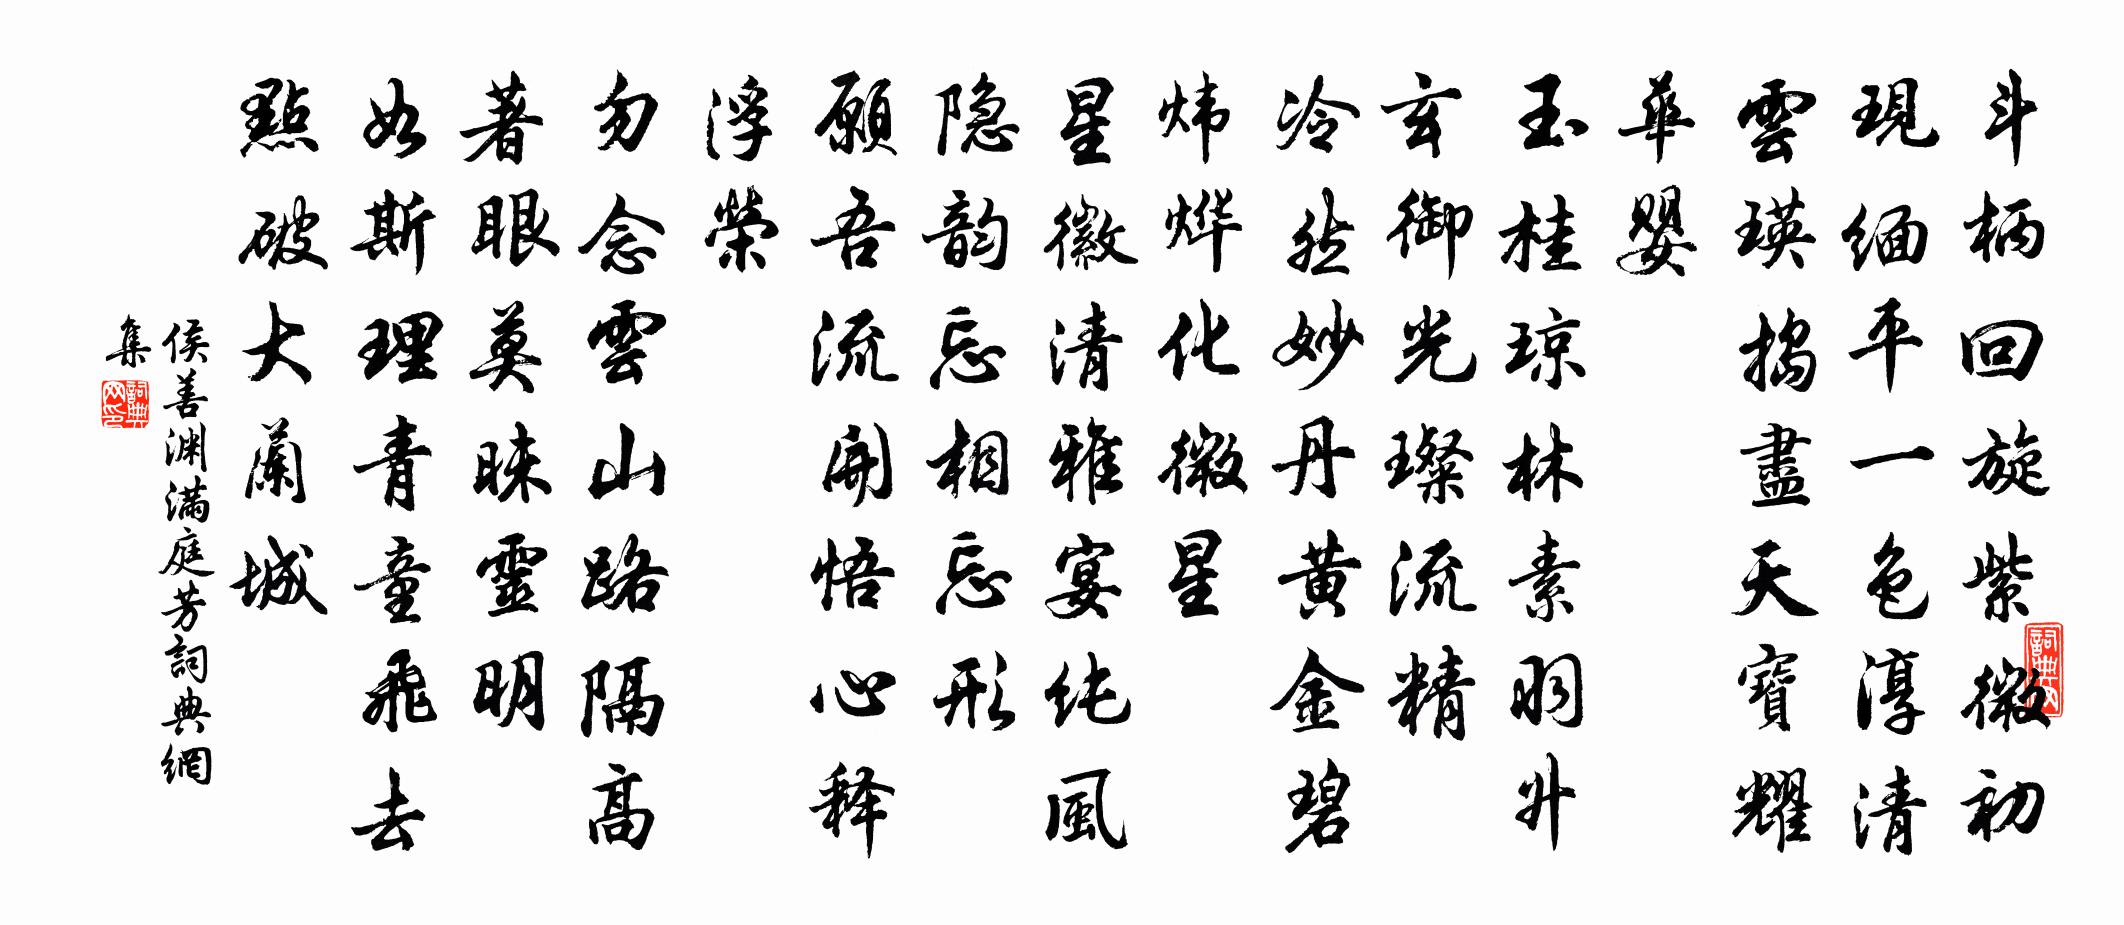 斗柄回旋紫微初
現缅平一色淳清
雲瑛搗盡天寶耀
華嬰
玉桂琼林素羽升
玄御光璨流精
冷然妙丹黄金碧
炜烨化微星
星徽清雅宴纯風
隐韵忘相忘形
願吾流開悟心释
浮榮
勿念雲山路隔高
著眼莫睐靈明
如斯理青童飛去
點破大蘭城
侯善渊满庭芳詞典網
集
詞典